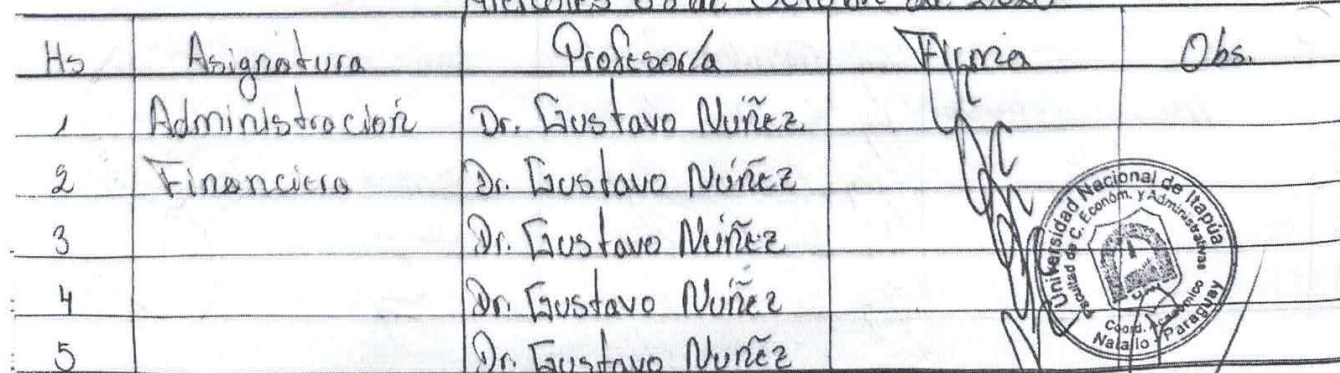 Miércoles de Octubre de 2020
Hs Asignatura Profesor/a Firma Obs.
1 Administración Dr. Gustavo Nuñez
2 Financiera Dr. Gustavo Nuñez
3 Dr. Gustavo Nuñez
4 Dr. Gustavo Nuñez
5 Dr. Gustavo Nuñez
Universidad Nacional de Itapúa
Facultad de C. Econom. y Administrativas
Coord. Académico
Natalio - Paraguay